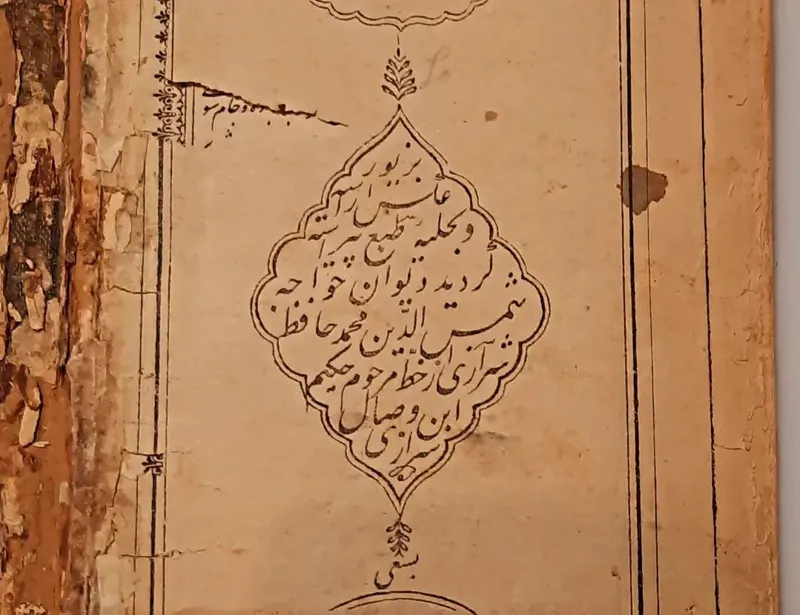 بزیور
عکس آراسته
و بحلیه طبع پیراسته
گردید دیوان خواجه
شمس الدّین محمد حافظ
شیرازی از خط مرحوم حکیم
ابن وصال
شیرازی
بسعی